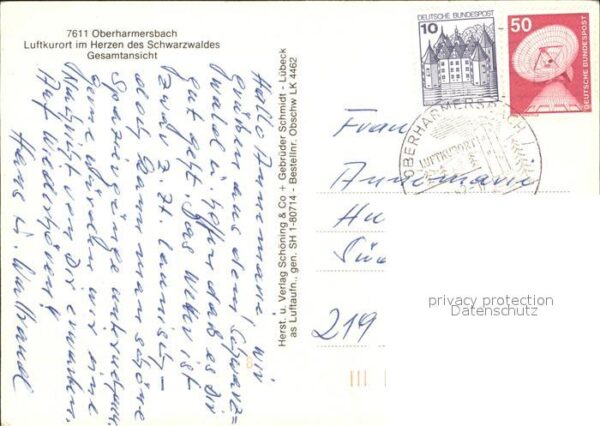 7611 Oberharmersbach
Luftkurort im Herzen des Schwarzwaldes
Gesamtansicht
Hallo Annemarie, wir
grüßen aus dem Schwarz=
wald u. hoffen daß es Dir
gut geht. Das Wetter ist
zwar z. Zt. launisch –
doch kann man schöne
Spaziergänge unternehmen.
Gerne würden wir eine
von Dir erwarten.
Auf Wiederhören!
Hans u. Waltraud
Herst. u. Verlag Schöning & Co + Gebrüder Schmidt - Lübeck
as Luftaufn., gen. SH 1-80714 - Bestellnr. Obschw LK 4462
10
DEUTSCHE BUNDESPOST
50
DEUTSCHE BUNDESPOST
OBERHARMERSBACH
LUFTKURORT
Frau
Annemarie
Hu
219
privacy protection
Datenschutz